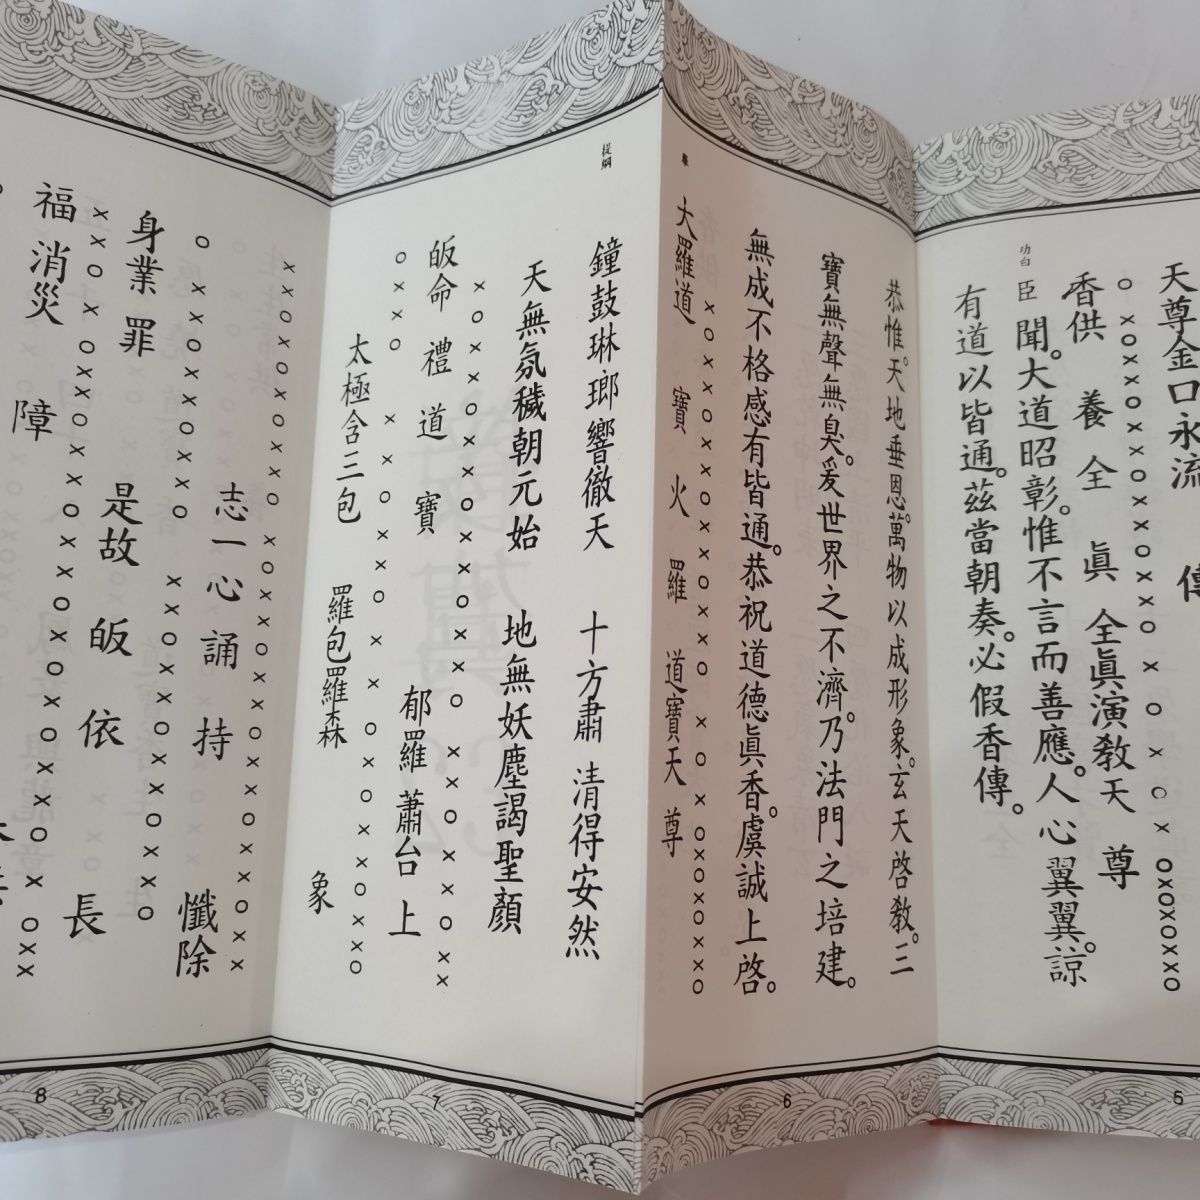 天尊金口永流 傳
香供 養 全 眞 全眞演教天 尊
功白 臣 聞。大道昭彰。惟不言而善應。人心翼翼。諒
有道以皆通。茲當朝奏。必假香傳。
5
恭惟。天地垂恩。萬物以成形象。玄天啓教。三
寶無聲無臭。爰世界之不濟。乃法門之培建。
無成不格感有皆通。恭祝道德眞香。虔誠上啓。
舉 大羅道 寶 火 羅 道寶天 尊
6
提綱
鐘鼓琳瑯響徹天 十方肅 清得安然
天無氛穢朝元始 地無妖塵謁聖顏
皈命 禮 道 寶 郁羅蕭台 上
太極含三包 羅包羅森 象
7
志一心 誦 持 懺除
身業 罪 是故 皈 依 長
福 消災 障
8